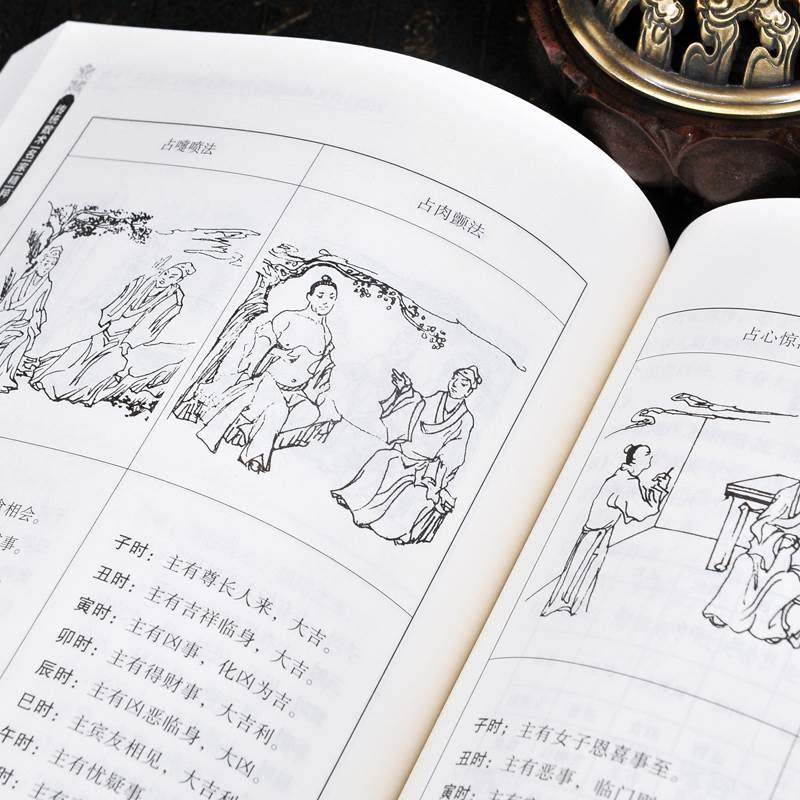 占嚏喷法
占肉颤法
会相会。
事。
子时：主有尊长人来，大吉。
丑时：主有吉祥临身，大吉。
寅时：主有凶事，化凶为吉。
卯时：主有得财事，大吉利。
辰时：主有凶恶临身，大凶。
巳时：主宾友相见，大吉利
午时：主有忧疑事
时：主
占心惊
子时；主有女子恩喜事至。
丑时：主有恶事，临门
寅时：主